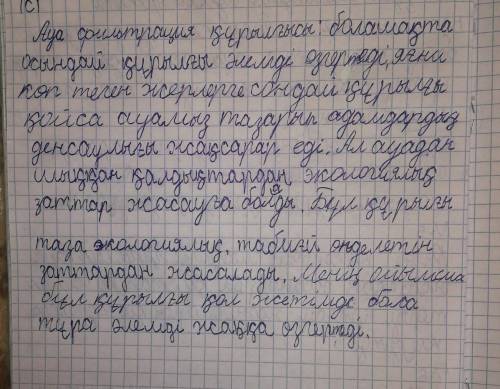 1С)
Ауа фильтрация құрылғысы: боламақта
осындай құрылғы әлемді өзгертеді, яғни
көп теген жерлерге сондай құрылғы
қойса ауамыз тазарып адамдардың
денсаулығы жақсарар еді. Ал ауадан
шыққан қалдықтардан экологиялық
заттар жасауға болады. Бұл құрығы
таза экологиялық, табиғй өнделетін
заттардан жасалады. Менің ойымша
бұл құрылғы қол жетімде бола
тұра әлемді жаққа өзгертеді.